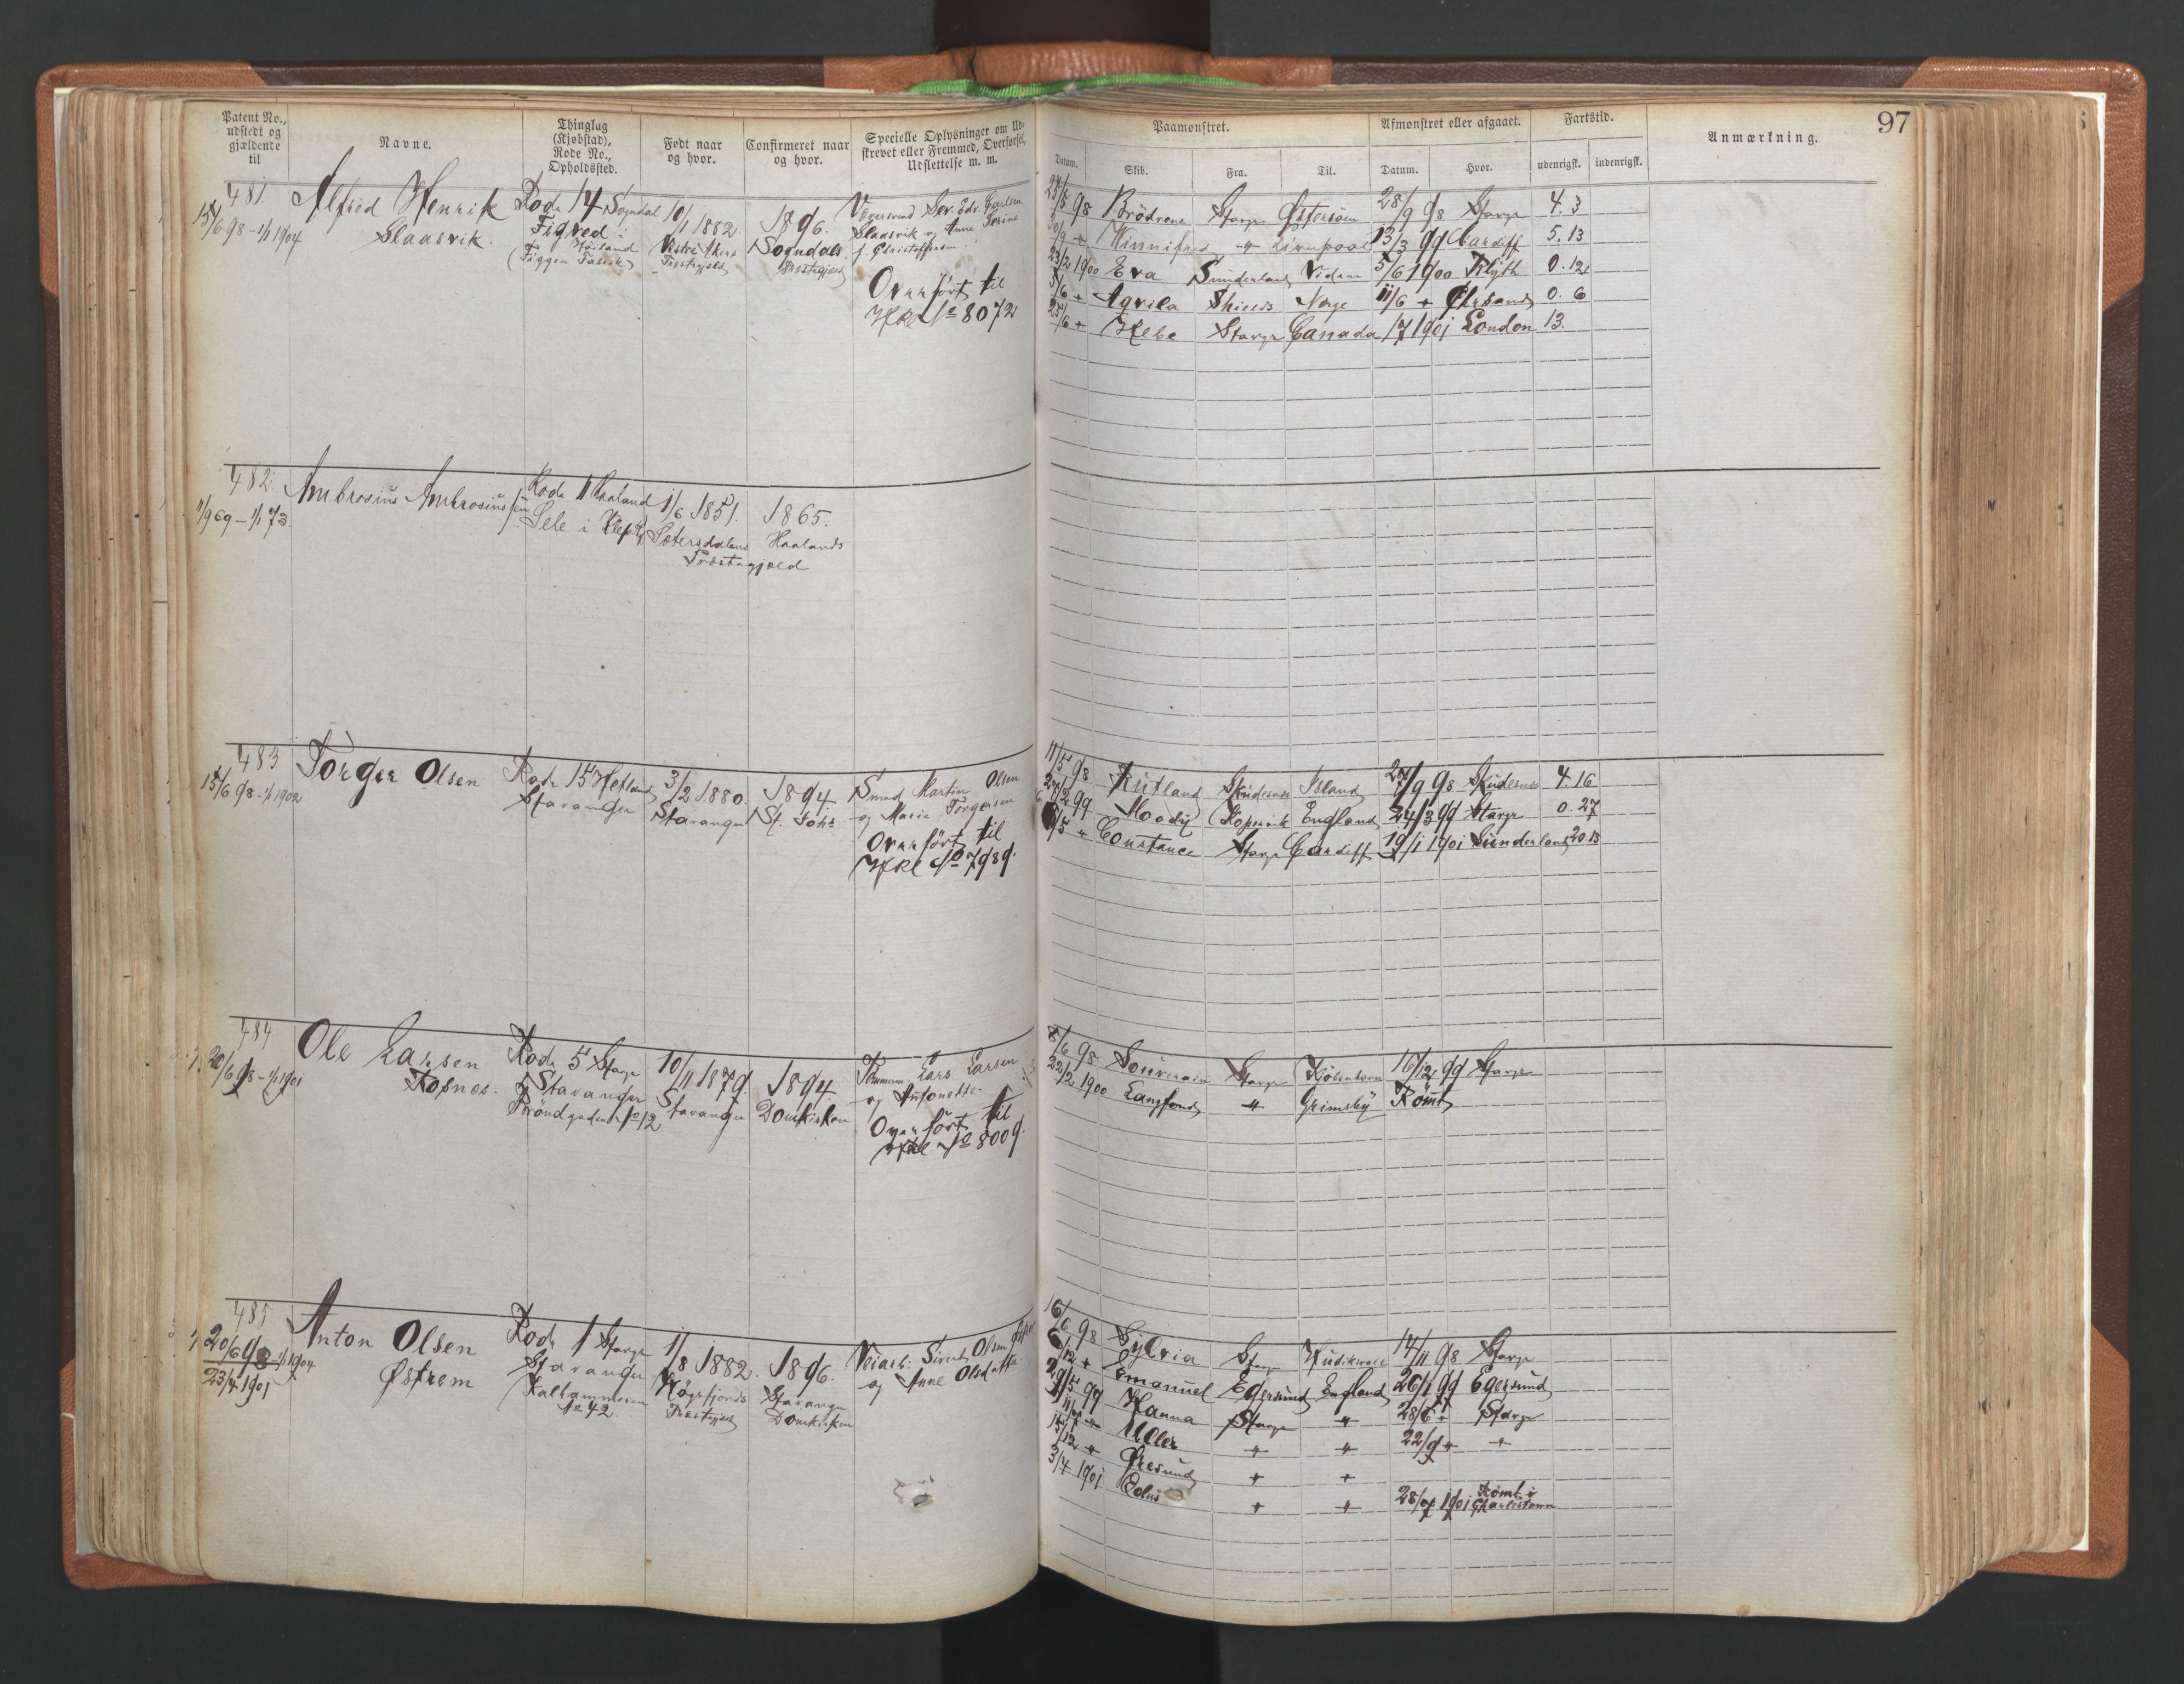 Patent No.,
udstedt og
gjældende
til
Navne.
Thinglag
(Kjøbstad),
Rode No.,
Opholdssted.
Født naar
og hvor.
Confirmeret naar
og hvor.
Specielle Oplysninger om Ud-
skrevet eller Fremmed, Overførsel,
Udslettelse m. m.
481.
15/6 98 - 1/1 1904
Alfred Henrik
Slaasvik.
Rode 14 Sogndal
Figved i
Høiland
(Figgen Fabrik)
10/1 1882.
Vestre Akers
Præstegjeld
1896.
Sogndals
Præstegjeld
Væversvend Sev. Edv. Carlsen
Slaasvik og Anne Serine
f. Christoffersen
Overført til
Hkl No 8072
482.
11/9 69 - 1/1 73.
Ambrosius Ambrosiussen
Rode 11 Haaland
Sele i Klep
1/6 1851.
Sætersdalens
Præstegjeld
1865.
Haalands
483
15/6 98 - 1/1 1902
Torger Olsen
Rode 15 Hetland
Stavanger
3/2 1880.
Stavanger
1894.
St. Joh.
Smed Martin Olsen
og Marie Torgersen
Overført til
Hkl No 7989.
484
20/6 98 - 1/1 1901
Ole Larsen
Rosnes.
Rode 5 Stavgr
Stavanger
Brøndgaden No 12
10/11 1879.
Stavanger
1894
Domkirken
Tømmerm. Lars Larsen
og Antonette
Overført til
Hkl No 8009.
485
20/6 98 - 1/1 1904
23/4 1901
Anton Olsen
Østrem
Rode 1 Stavgr
Stavanger
Kalhammeren
No 42.
1/8 1882.
Høgsfjords
Præstegjeld
1896.
Stavanger
Domkirken
Veiarb. Sivert Olsen
og Anne Olsdatter
97
Paamønstret.
Afmønstret eller afgaaet.
Fartstid.
Anmærkning.
Datum.
Skib.
Fra.
Til.
Datum.
Hvor.
udenrigsk.
indenrigsk.
27/5 98 Brödrene Stavgr Østersøen 28/9 98 Stavgr 4. 3
Winnifred " Liverpool 13/3 99 Cardiff 5. 13
23/2 1900 Eva Sunderland Vidare 5/6 1900 Blyth 0. 12
5/6 + Aqvila Shields Norge 11/6 + Chrsand 0. 6
25/6 + Hebe Stavgr Canada 1/7 1901 London 13.
11/5 98 Rutland Skudesnes Island 27/9 98 Skudesnes 4. 16
27/2 99 Moody Kopervik England 24/3 99 Stavgr 0. 27
/5 + Constance Stavgr Cardiff 19/1 1901 Sunderland 20. 13
8/6 98 Souverain Stavgr Kjøbenhavn 16/12 99 Stavgr
22/2 1900 Langfond " Grimsby Römt
16/6 98 Sylvia Stavgr Hudikvall 14/11 98 Stavgr
/12 + Emanuel Egersund England 26/1 99 Egersund
29/5 99 Hanna Stavgr " 28/6 + Stavgr
Uller " " 22/9 + "
/12 + Øresund + +
3/4 1901 Eolus + " 28/7 1901 Römt i
Charlestown